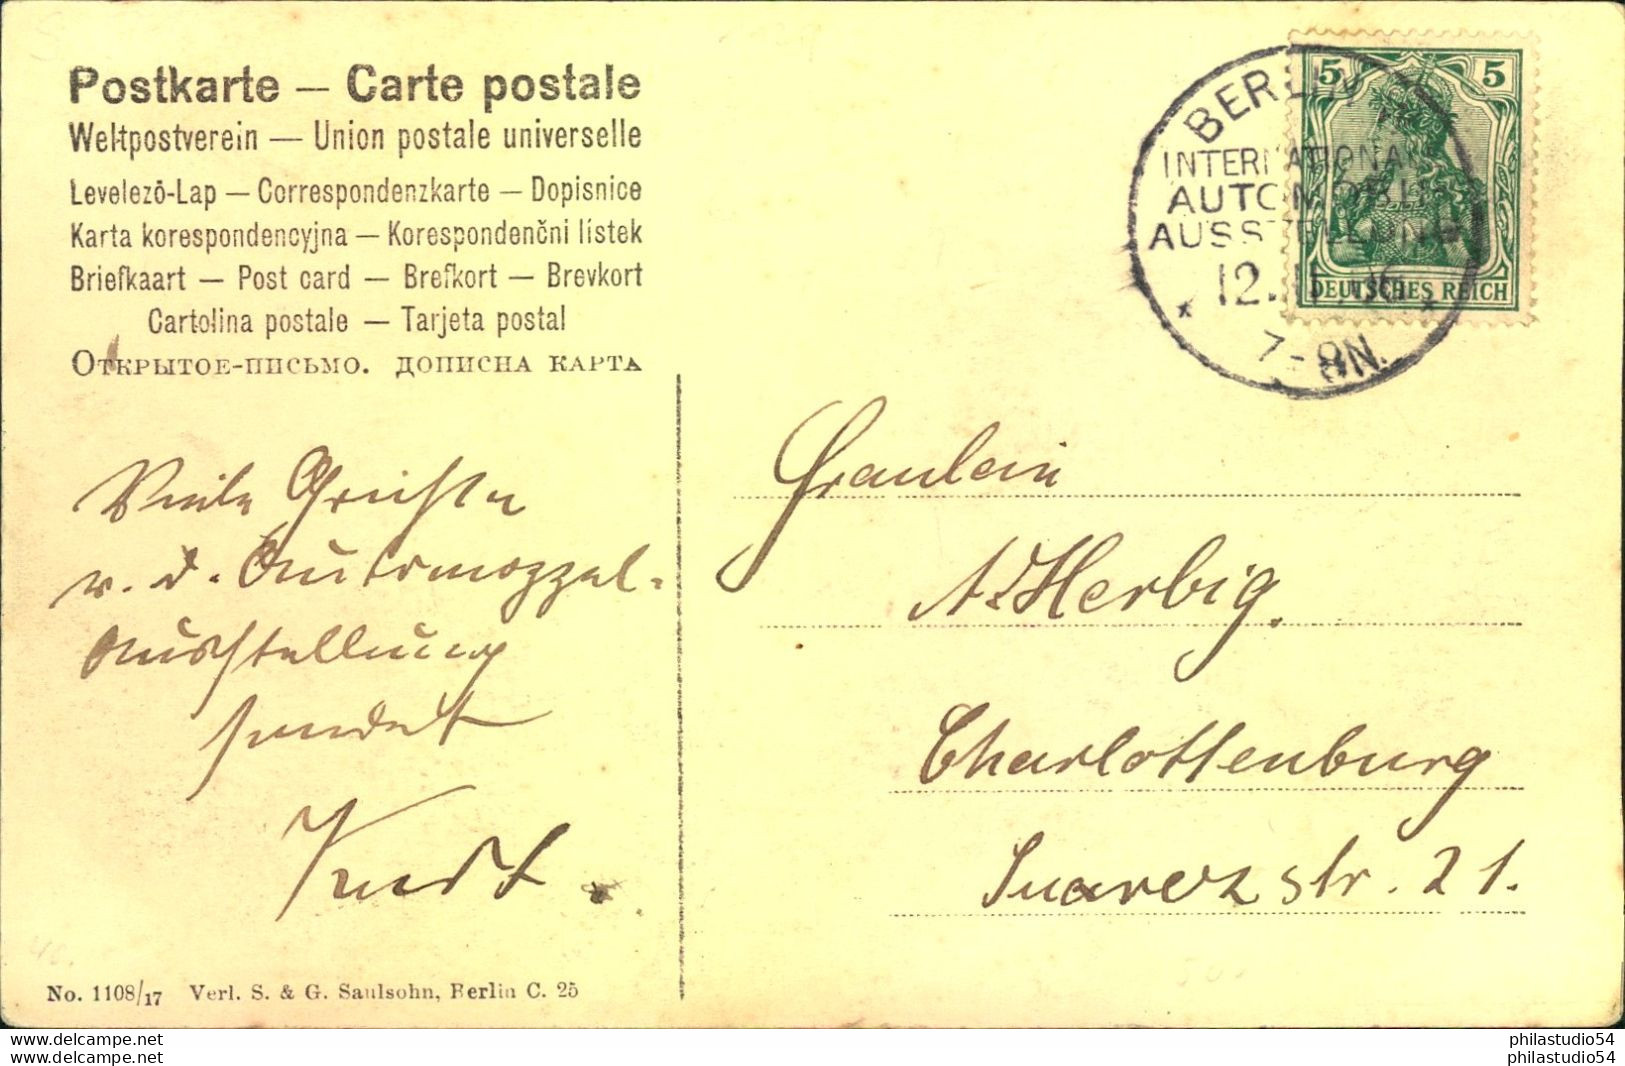 Postkarte — Carte postale
Weltpostverein — Union postale universelle
Levelezõ-Lap — Correspondenzkarte — Dopisnice
Karta korespondencyjna — Korespondenčni lístek
Briefkaart — Post card — Brefkort — Brevkort
Cartolina postale — Tarjeta postal
Открытое-письмо. дописна карта
BERLIN
INTERNATIONALE
AUTOMOBIL
AUSSTELLUNG
12.11.06
7-8N.
5 5
DEUTSCHES REICH
Viele Grüße
v. d. Automoppel-
Ausstellung
sendet
Kurt.
Fraulein
A. Herbig.
Charlottenburg
Suarezstr. 21.
No. 1108/17 Verl. S. & G. Saulsohn, Berlin C. 25
www.delcampe.net
www.delcampe.net
philastudio54
philastudio54